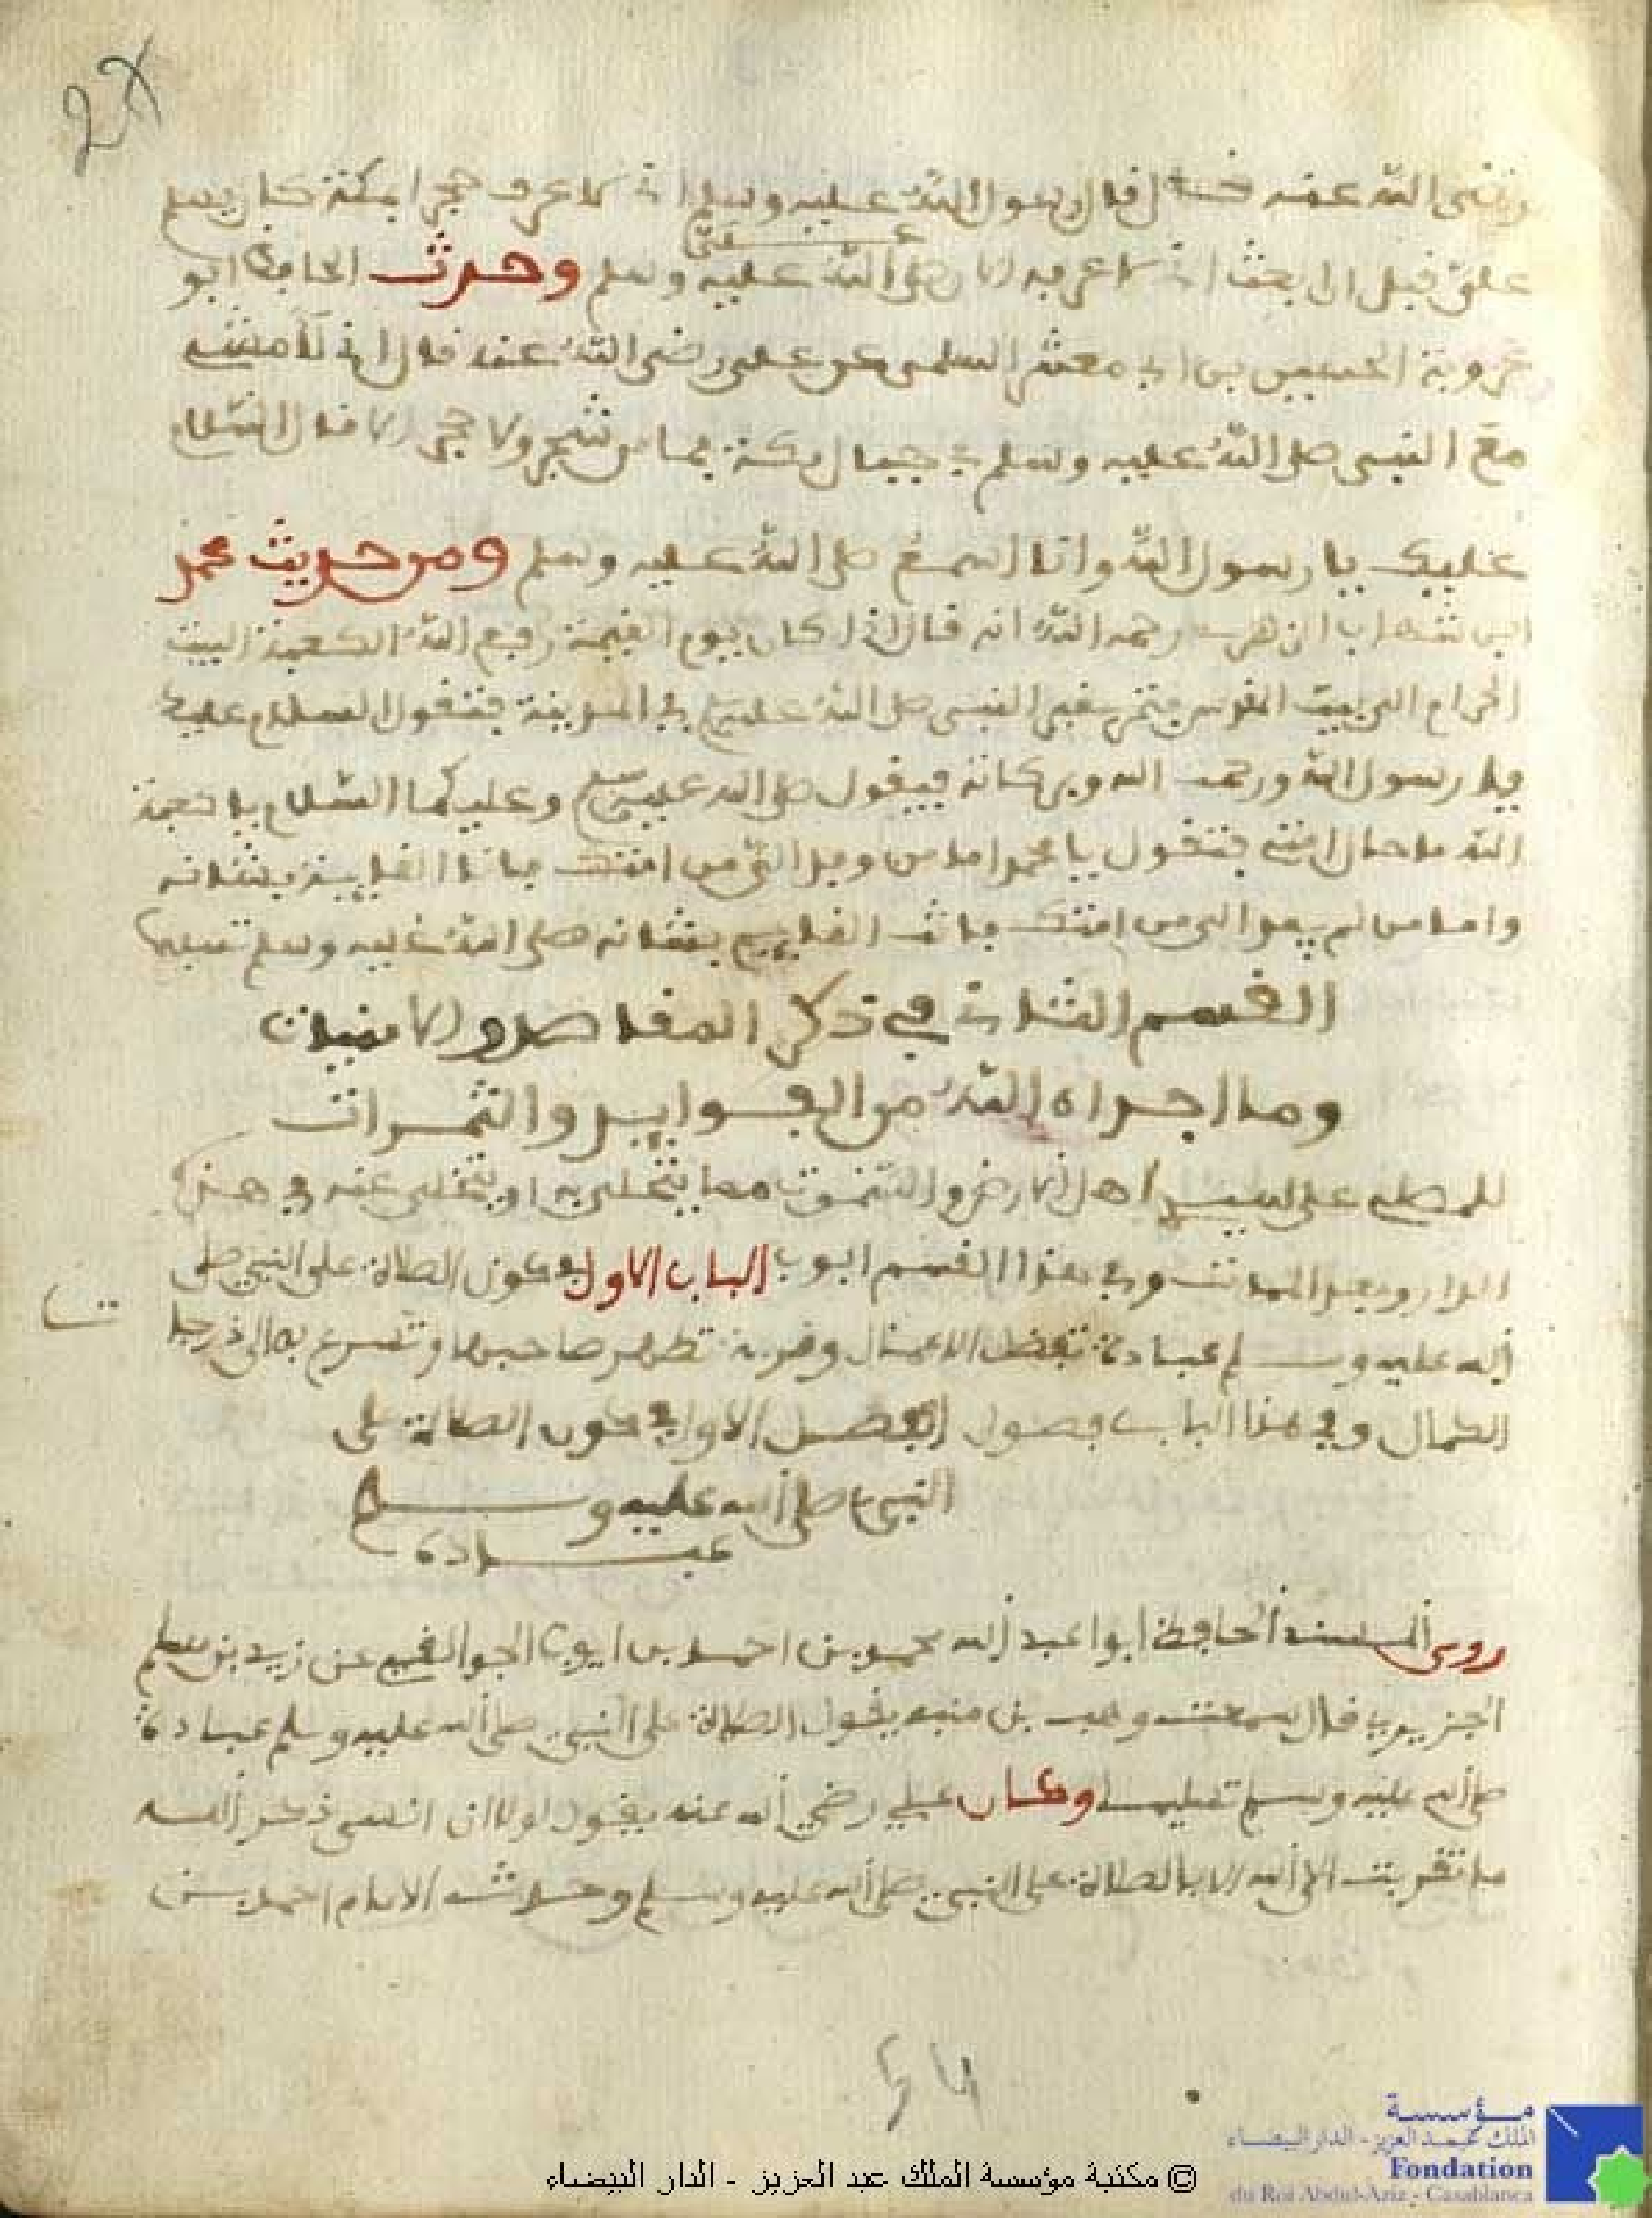 رضى الله عنه قال قال رسول الله عليه وسلم انى لاعرف حجرا بمكة كان يسلم
على
علىّ قبل ان ابعث انى لاعرفه الان صلى الله عليه وسلم وحدث الحافظ ابو
عروبة الحسين بن ابى معشر السلمى عن على رضى الله عنه قال انى لامشى
مع النبى صلى الله عليه وسلم فى جبال مكة فما من شجر ولا حجر الا قال السلام
عليك يا رسول الله وانا اسمع صلى الله عليه وسلم ومن حديث محمد
ابن شهاب الزهرى رحمه الله انه قال اذا كان يوم القيمة رفع الله الكعبة البيت
الحرام الى بيت المقدس فتمر بقبر النبى صلى الله عليه فى المدينة فتقول السلام عليك
يا رسول الله ورحمت الله وبركاته فيقول صلى الله عليه وسلم وعليكما السلام يا كعبة
الله ما حال امتى فتقول يا محمد اما من وفد الىّ من امتك فانا القايمة بشانه
واما من لم يفد الى من امتك فانت القايم بشانه صلى الله عليه وسلم تسليما
القسم الثانى فى ذكر المقاصد والامنيات
وما اجراه الله من الفوايد والثمرات
للمصلى على سيد اهل الارض والسموت مما يتحلى به او يتخلى عنه فى هذه
الدار وبعد الممات وفى هذا القسم ابوب الباب الاول فى كون الصلاة على النبى صلى
الله عليه وسلم عبادة تفضل الاعمال وقربة تطهر صاحبها وتسرع به الى درجات
الكمال وفى هذا الباب فصول الفصل الاول فى كون الصلاة على
النبى صلى الله عليه وسلم
عبادة
روى الحافظ ابوا عبد الله محمد بن احمد بن ايوب عن زيد بن مسلم
قال سمعت وهب بن منبه يقول الصلاة على النبى صلى الله عليه وسلم عبادة
صلى الله عليه وسلم تسليما وكان على رضى الله عنه يقول لولا ان انسى ذكر الله
ما تقربت الى الله الا بالصلاة على النبى صلى الله عليه وسلم وحدث الامام احمد بن
مؤسسة
الملك عبد العزيز - الدار البيضاء
Fondation
du Roi Abdul-Aziz - Casablanca
© مكتبة مؤسسة الملك عبد العزيز - الدار البيضاء